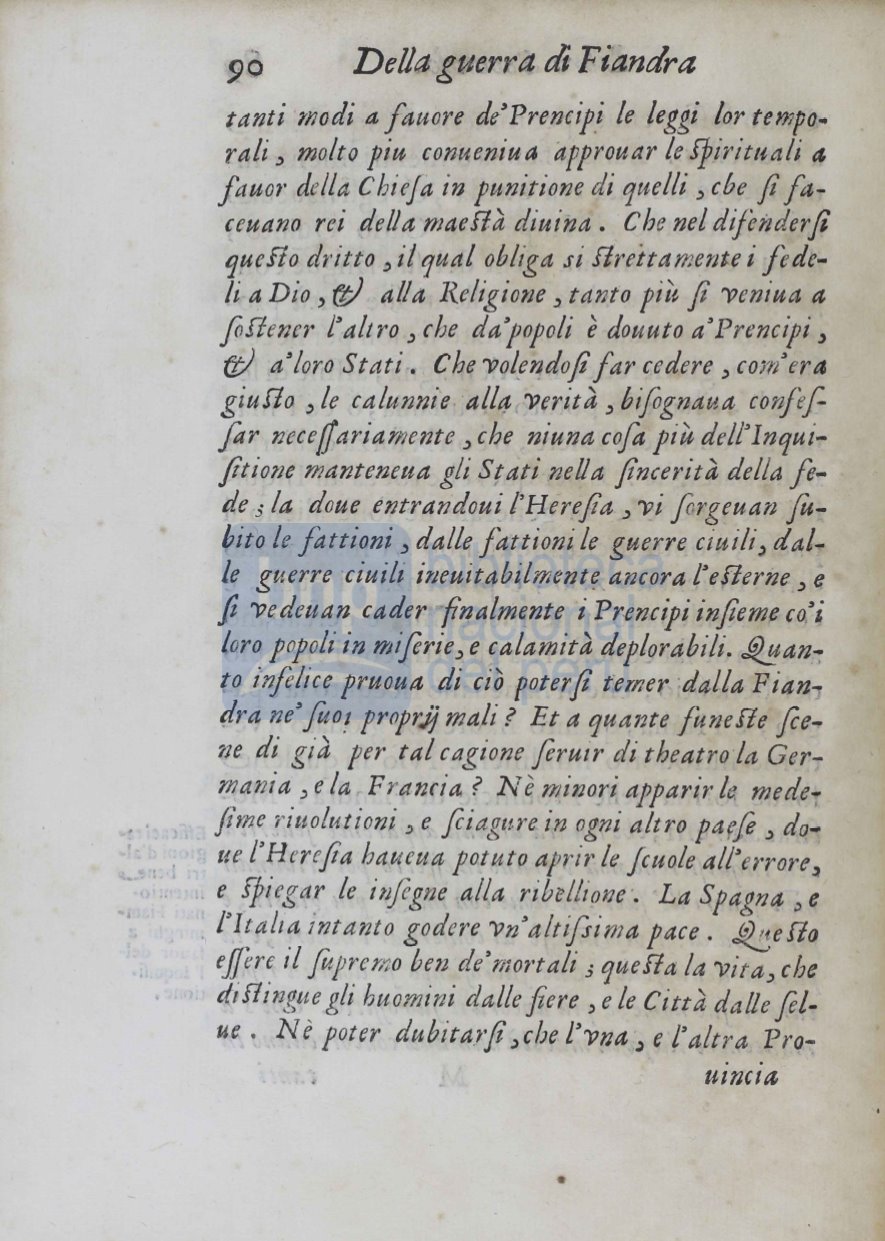 90 Della guerra di Fiandra
tanti modi a fauore de'Prencipi le leggi lor tempo-
rali, molto piu conueniua approuar le ſpirituali a
fauor della Chieſa in punitione di quelli, che ſi fa-
ceuano rei della maeſtà diuina. Che nel difenderſi
queſto dritto, il qual obliga sì ſtrettamente i fede-
li a Dio, & alla Religione, tanto più ſi veniua a
ſoſtener l'altro, che da'popoli è douuto a'Prencipi,
& a'loro Stati. Che volendoſi far cedere, com'era
giuſto, le calunnie alla verità, biſognaua confeſ-
ſar neceſſariamente, che niuna coſa più dell'Inqui-
ſitione manteneua gli Stati nella ſincerità della fe-
de; la doue entrandoui l'Hereſia, vi ſorgeuan ſu-
bito le fattioni, dalle fattioni le guerre ciuili, dal-
le guerre ciuili ineuitabilmente ancora l'eſterne, e
ſi vedeuan cader finalmente i Prencipi inſieme co'i
loro popoli in miſerie, e calamità deplorabili. Quan-
to infelice pruoua di ciò poterſi temer dalla Fian-
dra ne' ſuoi proprij mali? Et a quante funeſte ſce-
ne di già per tal cagione ſeruir di theatro la Ger-
mania, e la Francia? Nè minori apparir le mede-
ſime riuolutioni, e ſciagure in ogni altro paeſe, do-
ue l'Hereſia haueua potuto aprir le ſcuole all'errore,
e ſpiegar le inſegne alla ribellione. La Spagna, e
l'Italia intanto godere vn'altiſsima pace. Queſto
eſſere il ſupremo ben de'mortali; queſta la vita, che
diſtingue gli huomini dalle fiere, e le Città dalle ſel-
ue. Nè poter dubitarſi, che l'vna, e l'altra Pro-
uincia